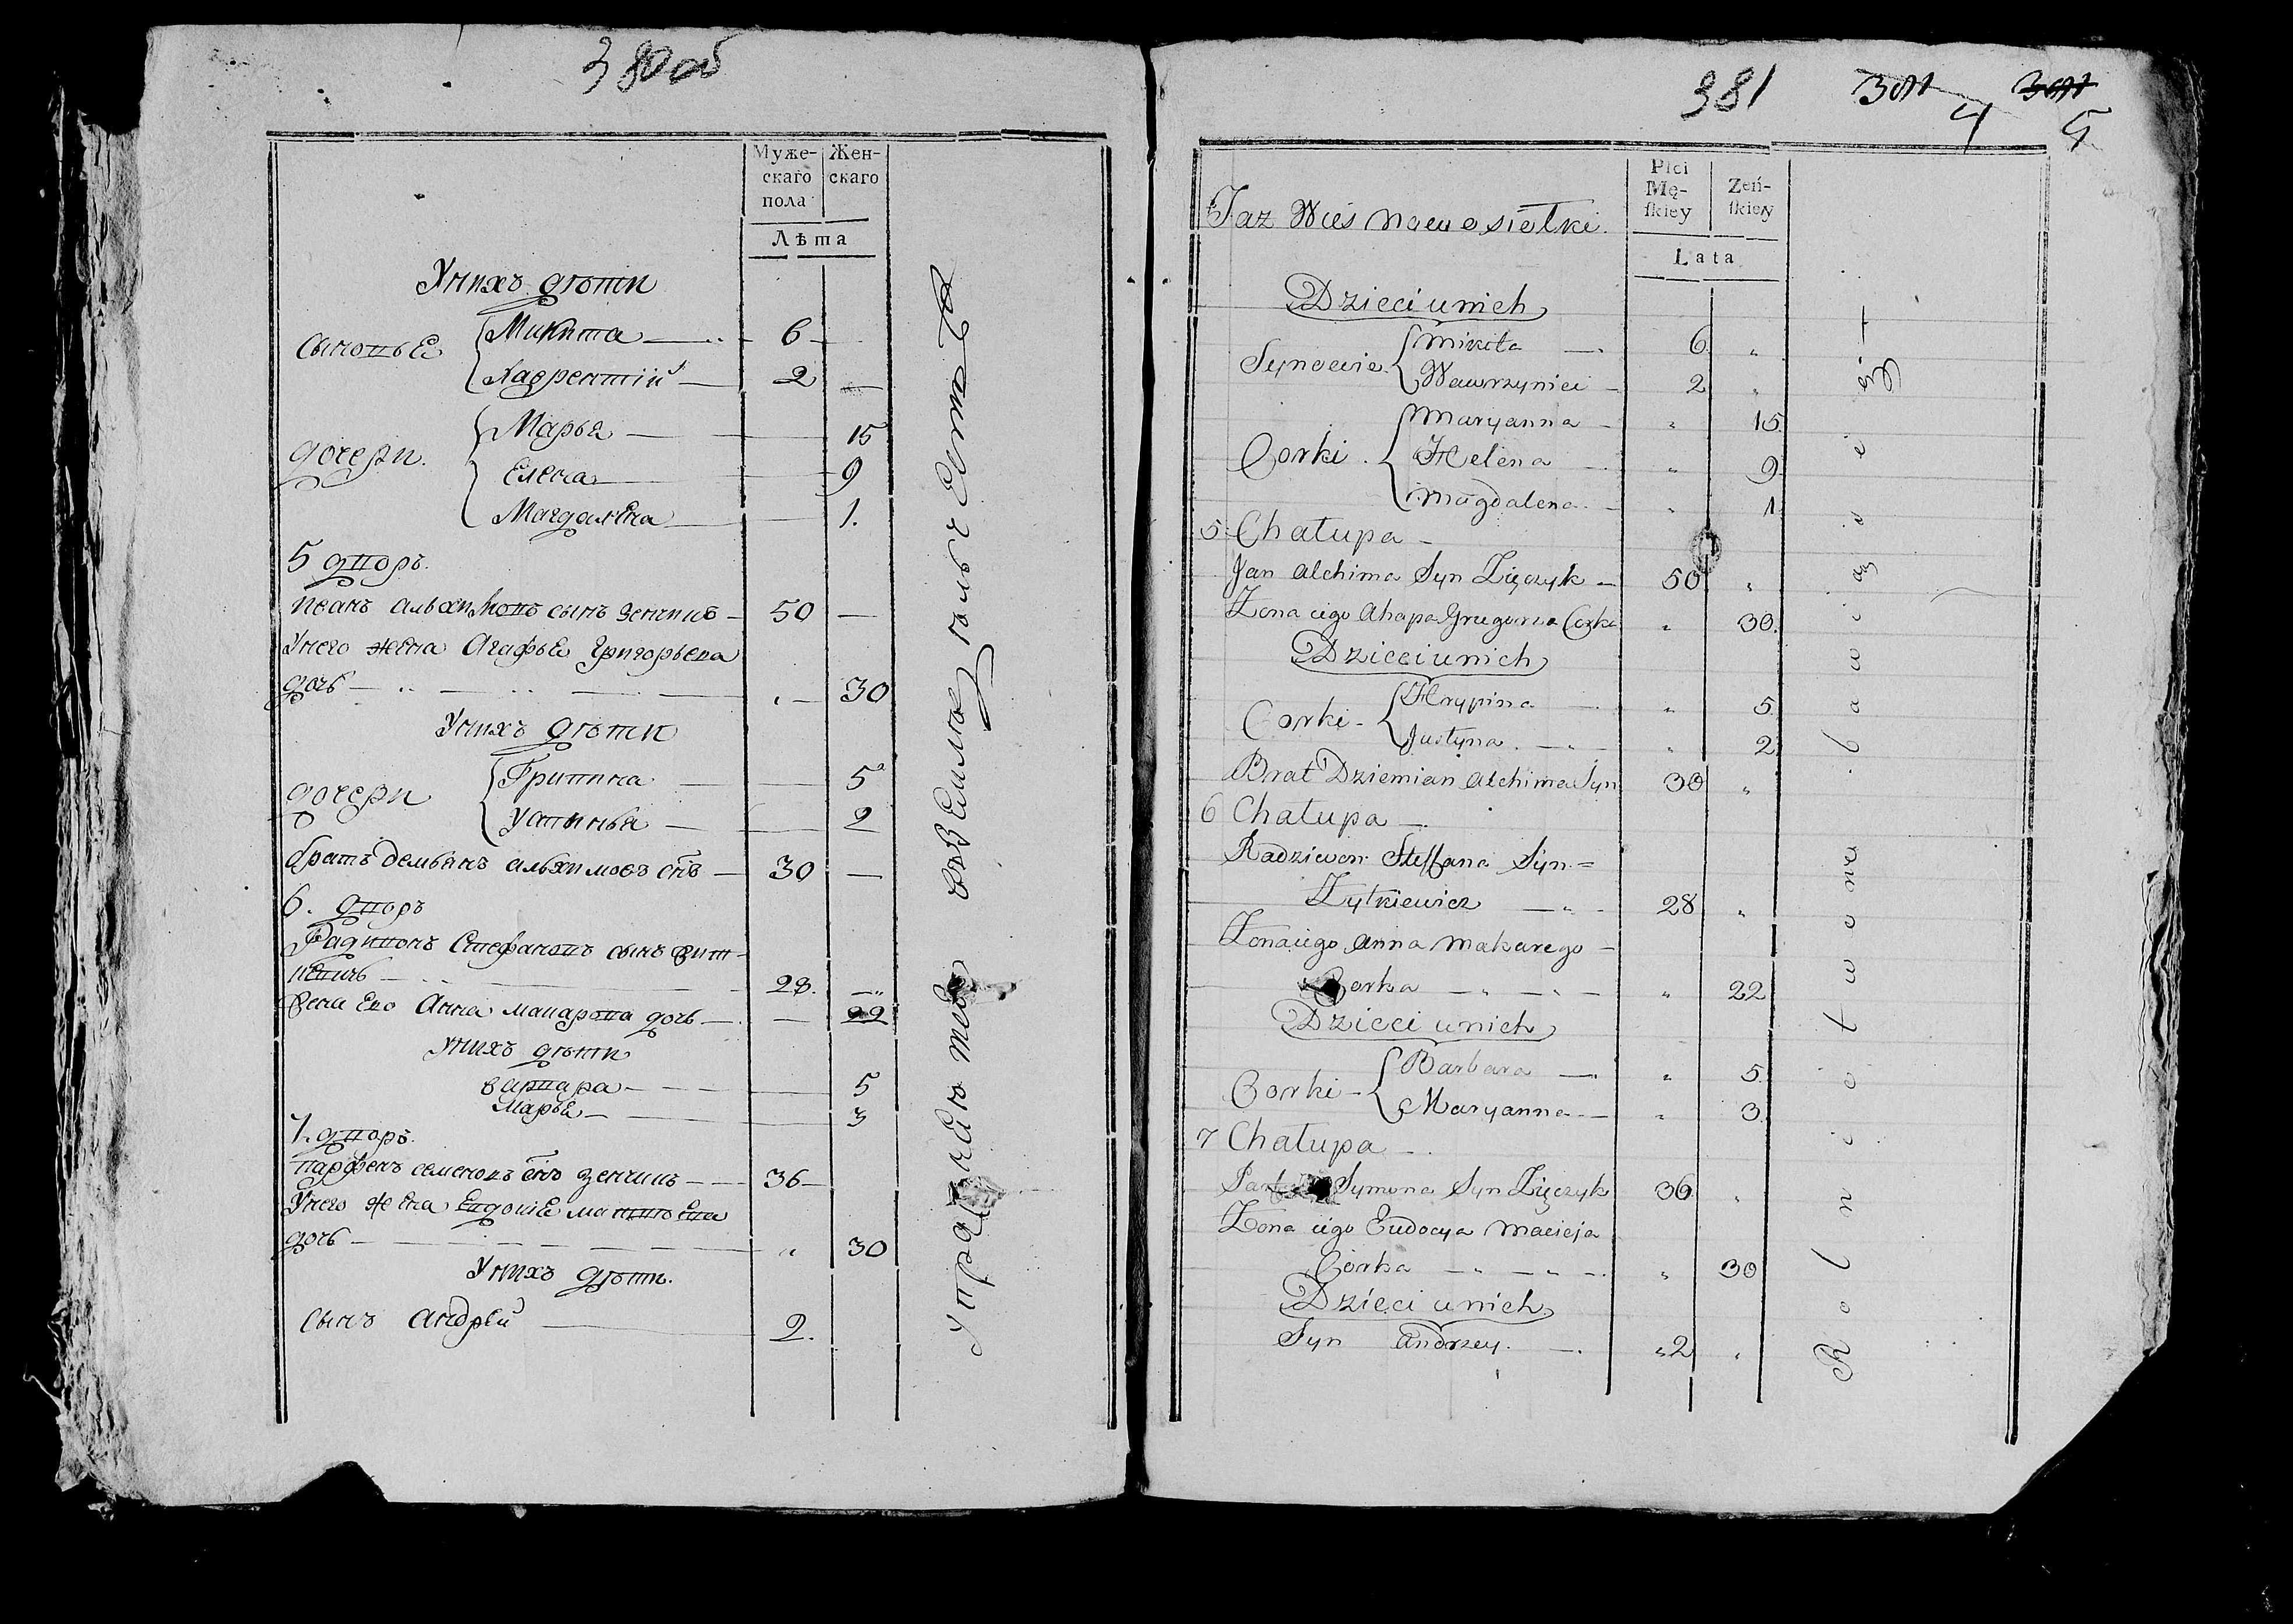 380 об
Муже-
скаго
пола
Жен-
скаго
Лѣта
У нихъ дѣти
сыновье
Микита — 6 —
Лаврентій — 2 —
дочери.
Марья — 15
Елена — 9
Магдалена — 1.
5 дворъ.
Иванъ Альхимовъ сынъ — 50 —
У него жена Агафья Григорьева
дочь — „ — 30
У нихъ дѣти
дочери
Грипина — 5
Устинья — 2
братъ Демьянъ Альхимовъ снъ — 30 —
6. дворъ
Радивонъ Стефановъ сынъ
28. — „
жена Ево Анна Макарова дочь — 22
У нихъ дѣти
Варвара — 5
Марья — 3
7. дворъ.
Парфенъ Семеновъ снъ — 36 —
У него жена Евдокіе
дочь — „ 30
У нихъ дѣти.
сынъ Андрей — 2.
381
4
5
Taz Wieś Nowosiołki.
Płci
Mę-
ſkiey
Zeń-
ſkiey
Lata
Dzieci unich
Synowie
Mikita — 6 „
Wawrzyniec — 2 „
Corki.
Maryanna — „ 15.
Helena — „ 9
Magdalena. — „ 1
5 Chałupa —
Jan Alchima Syn Zięczyk — 50 „
Zona iego Ahapa Grzegorza Corka „ 30.
Dzieci unich
Corki —
Hrypina — „ 5.
Justyna. — „ 2
Brat Dziemian Alchima Syn 30 „
6 Chałupa —
Radziwon Steffana Syn =
Zytkiewicz — „ — 28 „
Zona iego Anna Makarego —
Corka — „ — „ — „ 22
Dzieci unich
Corki —
Barbara — „ 5.
Maryanna — „ 3.
7 Chałupa —
Symona Syn Zięczyk 36 „
Zona iego Eudocya Macieja
Corka — „ — „ — „ 30
Dzieci unich
Syn Andrzey. — „ 2 „